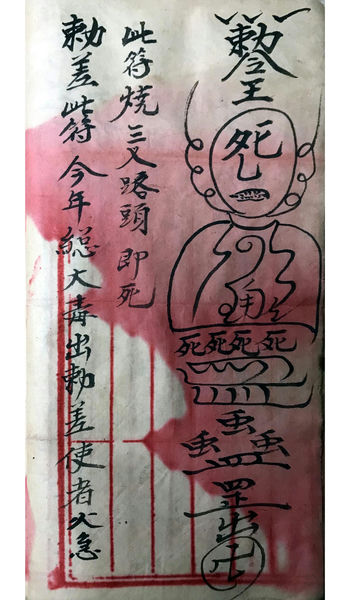 勅令
王
死
死死死死
虫
虫虫
此符燒三叉路頭即死
勅差此符今年総大毒出勅差使者火急